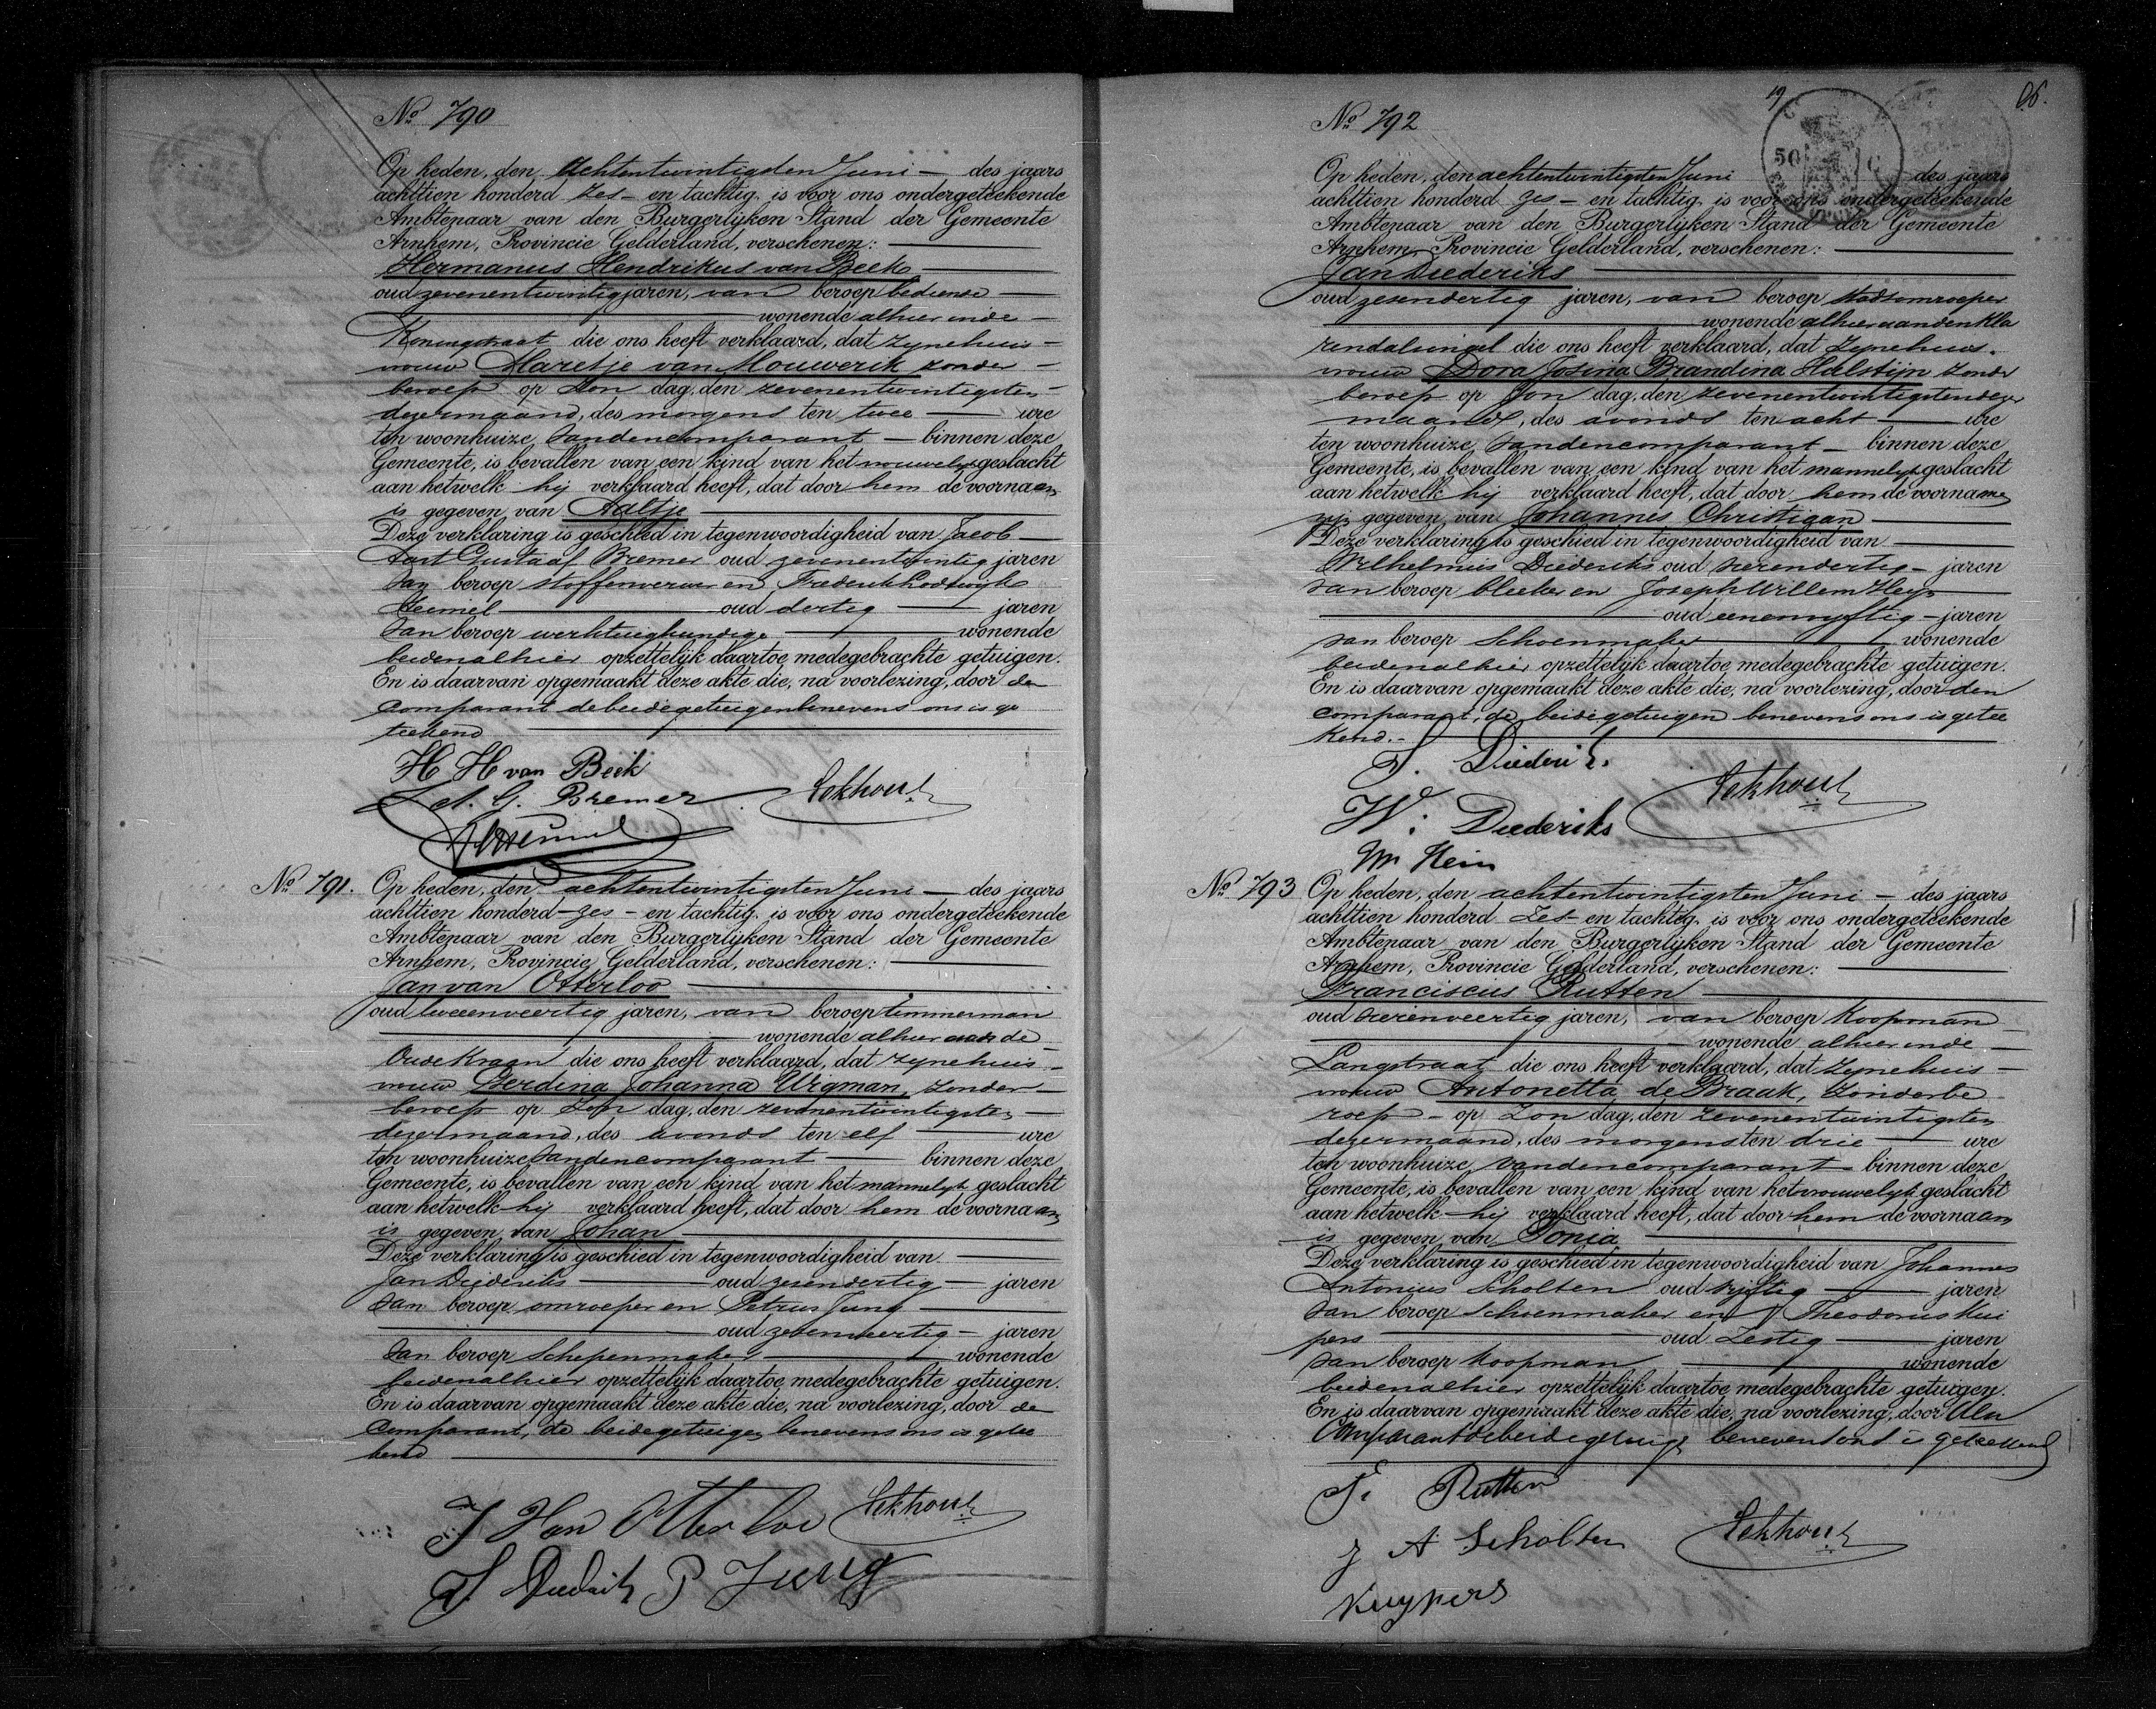 No 790
Op heden, den achtentwintigsten Juni - des jaars
achttien honderd zes - en tachtig, is voor ons ondergeteekende
Ambtenaar van den Burgerlijken Stand der Gemeente
Arnhem, Provincie Gelderland, verschenen:
Hermanus Hendrikus van Beek
oud zevenentwintig jaren, van beroep bediende
wonende alhier in de
Koningstraat die ons heeft verklaard, dat zijne huis-
vrouw Maretje van Mouwerik zonder
beroep op Zon dag, den zevenentwintigsten
dezer maand, des morgens ten twee ure
ten woonhuize van den comparant - binnen deze
Gemeente, is bevallen van een kind van het vrouwelijk geslacht
aan hetwelk hij verklaard heeft, dat door hem de voornaam
is gegeven van Aaltje
Deze verklaring is geschied in tegenwoordigheid van Jacob
Aart Gustaaf Bremer oud zevenentwintig jaren
van beroep stoffenverver en Frederik Lodewijk
oud dertig jaren
van beroep werktuigkundige wonende
beiden alhier opzettelijk daartoe medegebrachte getuigen.
En is daarvan opgemaakt deze akte die, na voorlezing, door de
comparant de beide getuigen benevens ons is ge
teekend
H H van Beek
J. A. G. Bremer
Eekhout
No 791.
Op heden, den achtentwintigsten Juni - des jaars
achttien honderd - zes - en tachtig, is voor ons ondergeteekende
Ambtenaar van den Burgerlijken Stand der Gemeente
Arnhem, Provincie Gelderland, verschenen:
Jan van Otterloo
oud tweeenveertig jaren, van beroep timmerman
wonende alhier aan de
Oude Kraan die ons heeft verklaard, dat zijne huis-
vrouw Gerdina Johanna Wigman, zonder
beroep op Zon dag, den zevenentwintigsten
dezer maand, des avonds ten elf ure
ten woonhuize van den comparant binnen deze
Gemeente, is bevallen van een kind van het mannelijk geslacht
aan hetwelk hij verklaard heeft, dat door hem de voornaam
is gegeven van Johan
Deze verklaring is geschied in tegenwoordigheid van
Jan Diederiks oud zesendertig - jaren
van beroep omroeper en Petrus Jung
oud zevenveertig - jaren
van beroep Schepenmaker wonende
beiden alhier opzettelijk daartoe medegebrachte getuigen.
En is daarvan opgemaakt deze akte die, na voorlezing, door de
comparant, de beide getuigen benevens ons is getee
kend
J Van Otterloo
Eekhout
J. Diederiks P Jung
19
06.
No 792
50
Op heden, den achtentwintigsten Juni des jaars
achttien honderd zes - en tachtig, is voor ons ondergeteekende
Ambtenaar van den Burgerlijken Stand der Gemeente
Arnhem, Provincie Gelderland, verschenen:
Jan Diederiks
oud zesendertig jaren, van beroep stadsomroeper
wonende alhier aan den Kla
rendalsingel die ons heeft verklaard, dat zijne huis-
vrouw Dora Josina Brandina Halstijn zonder
beroep op Zon dag, den zevenentwintigsten dezer
maand, des avonds ten acht ure
ten woonhuize van den comparant - binnen deze
Gemeente, is bevallen van een kind van het mannelijk geslacht
aan hetwelk hij verklaard heeft, dat door hem de voorname
zijn gegeven van Johannes Christiaan
Deze verklaring is geschied in tegenwoordigheid van
Wilhelmus Diederiks oud vierendertig - jaren
van beroep bleeker en Joseph Willem
oud eenenvijftig - jaren
van beroep Schoenmaker wonende
beiden alhier opzettelijk daartoe medegebrachte getuigen.
En is daarvan opgemaakt deze akte die, na voorlezing, door den
comparant, de beide getuigen benevens ons is getee
kend.
J. Diederiks
Eekhout
W. Diederiks
No 793
Op heden, den achtentwintigsten Juni - des jaars
achttien honderd zes - en tachtig, is voor ons ondergeteekende
Ambtenaar van den Burgerlijken Stand der Gemeente
Arnhem, Provincie Gelderland, verschenen:
Franciscus Rutten
oud vierenveertig jaren, van beroep Koopman
wonende alhier in de
Langstraat die ons heeft verklaard, dat zijne huis-
vrouw Antonetta de Braak, zonder be
roep - op Zon dag, den zevenentwintigsten
dezer maand, des morgens ten drie ure
ten woonhuize van den comparant - binnen deze
Gemeente, is bevallen van een kind van het vrouwelijk geslacht
aan hetwelk hij verklaard heeft, dat door hem de voornaam
is gegeven van Sonia
Deze verklaring is geschied in tegenwoordigheid van Johannes
Antonius Scholten oud vijftig jaren
van beroep Schoenmaker en Theodorus Kui
pers oud Zestig jaren
van beroep Koopman wonende
beiden alhier opzettelijk daartoe medegebrachte getuigen.
En is daarvan opgemaakt deze akte die, na voorlezing, door den
Comparant de beide getuigen benevens ons is geteekend
F. Rutten
J A Scholten
Eekhout
Kuypers